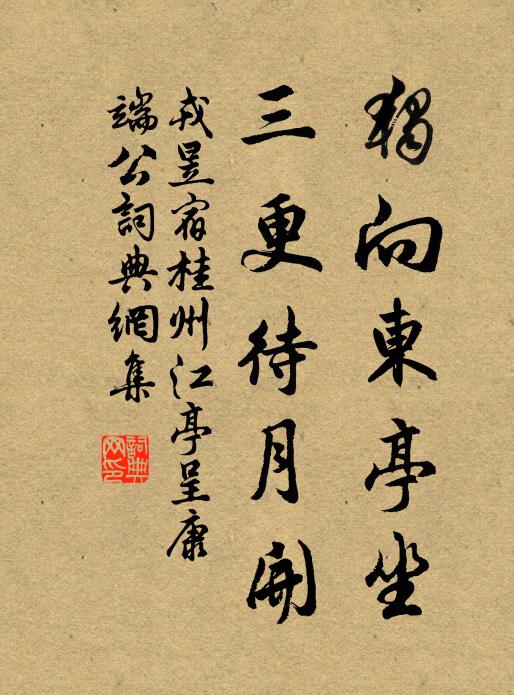 獨向東亭坐
三更待月開
戎昱宿桂州江亭呈康
端公詞典網集
詞典网印